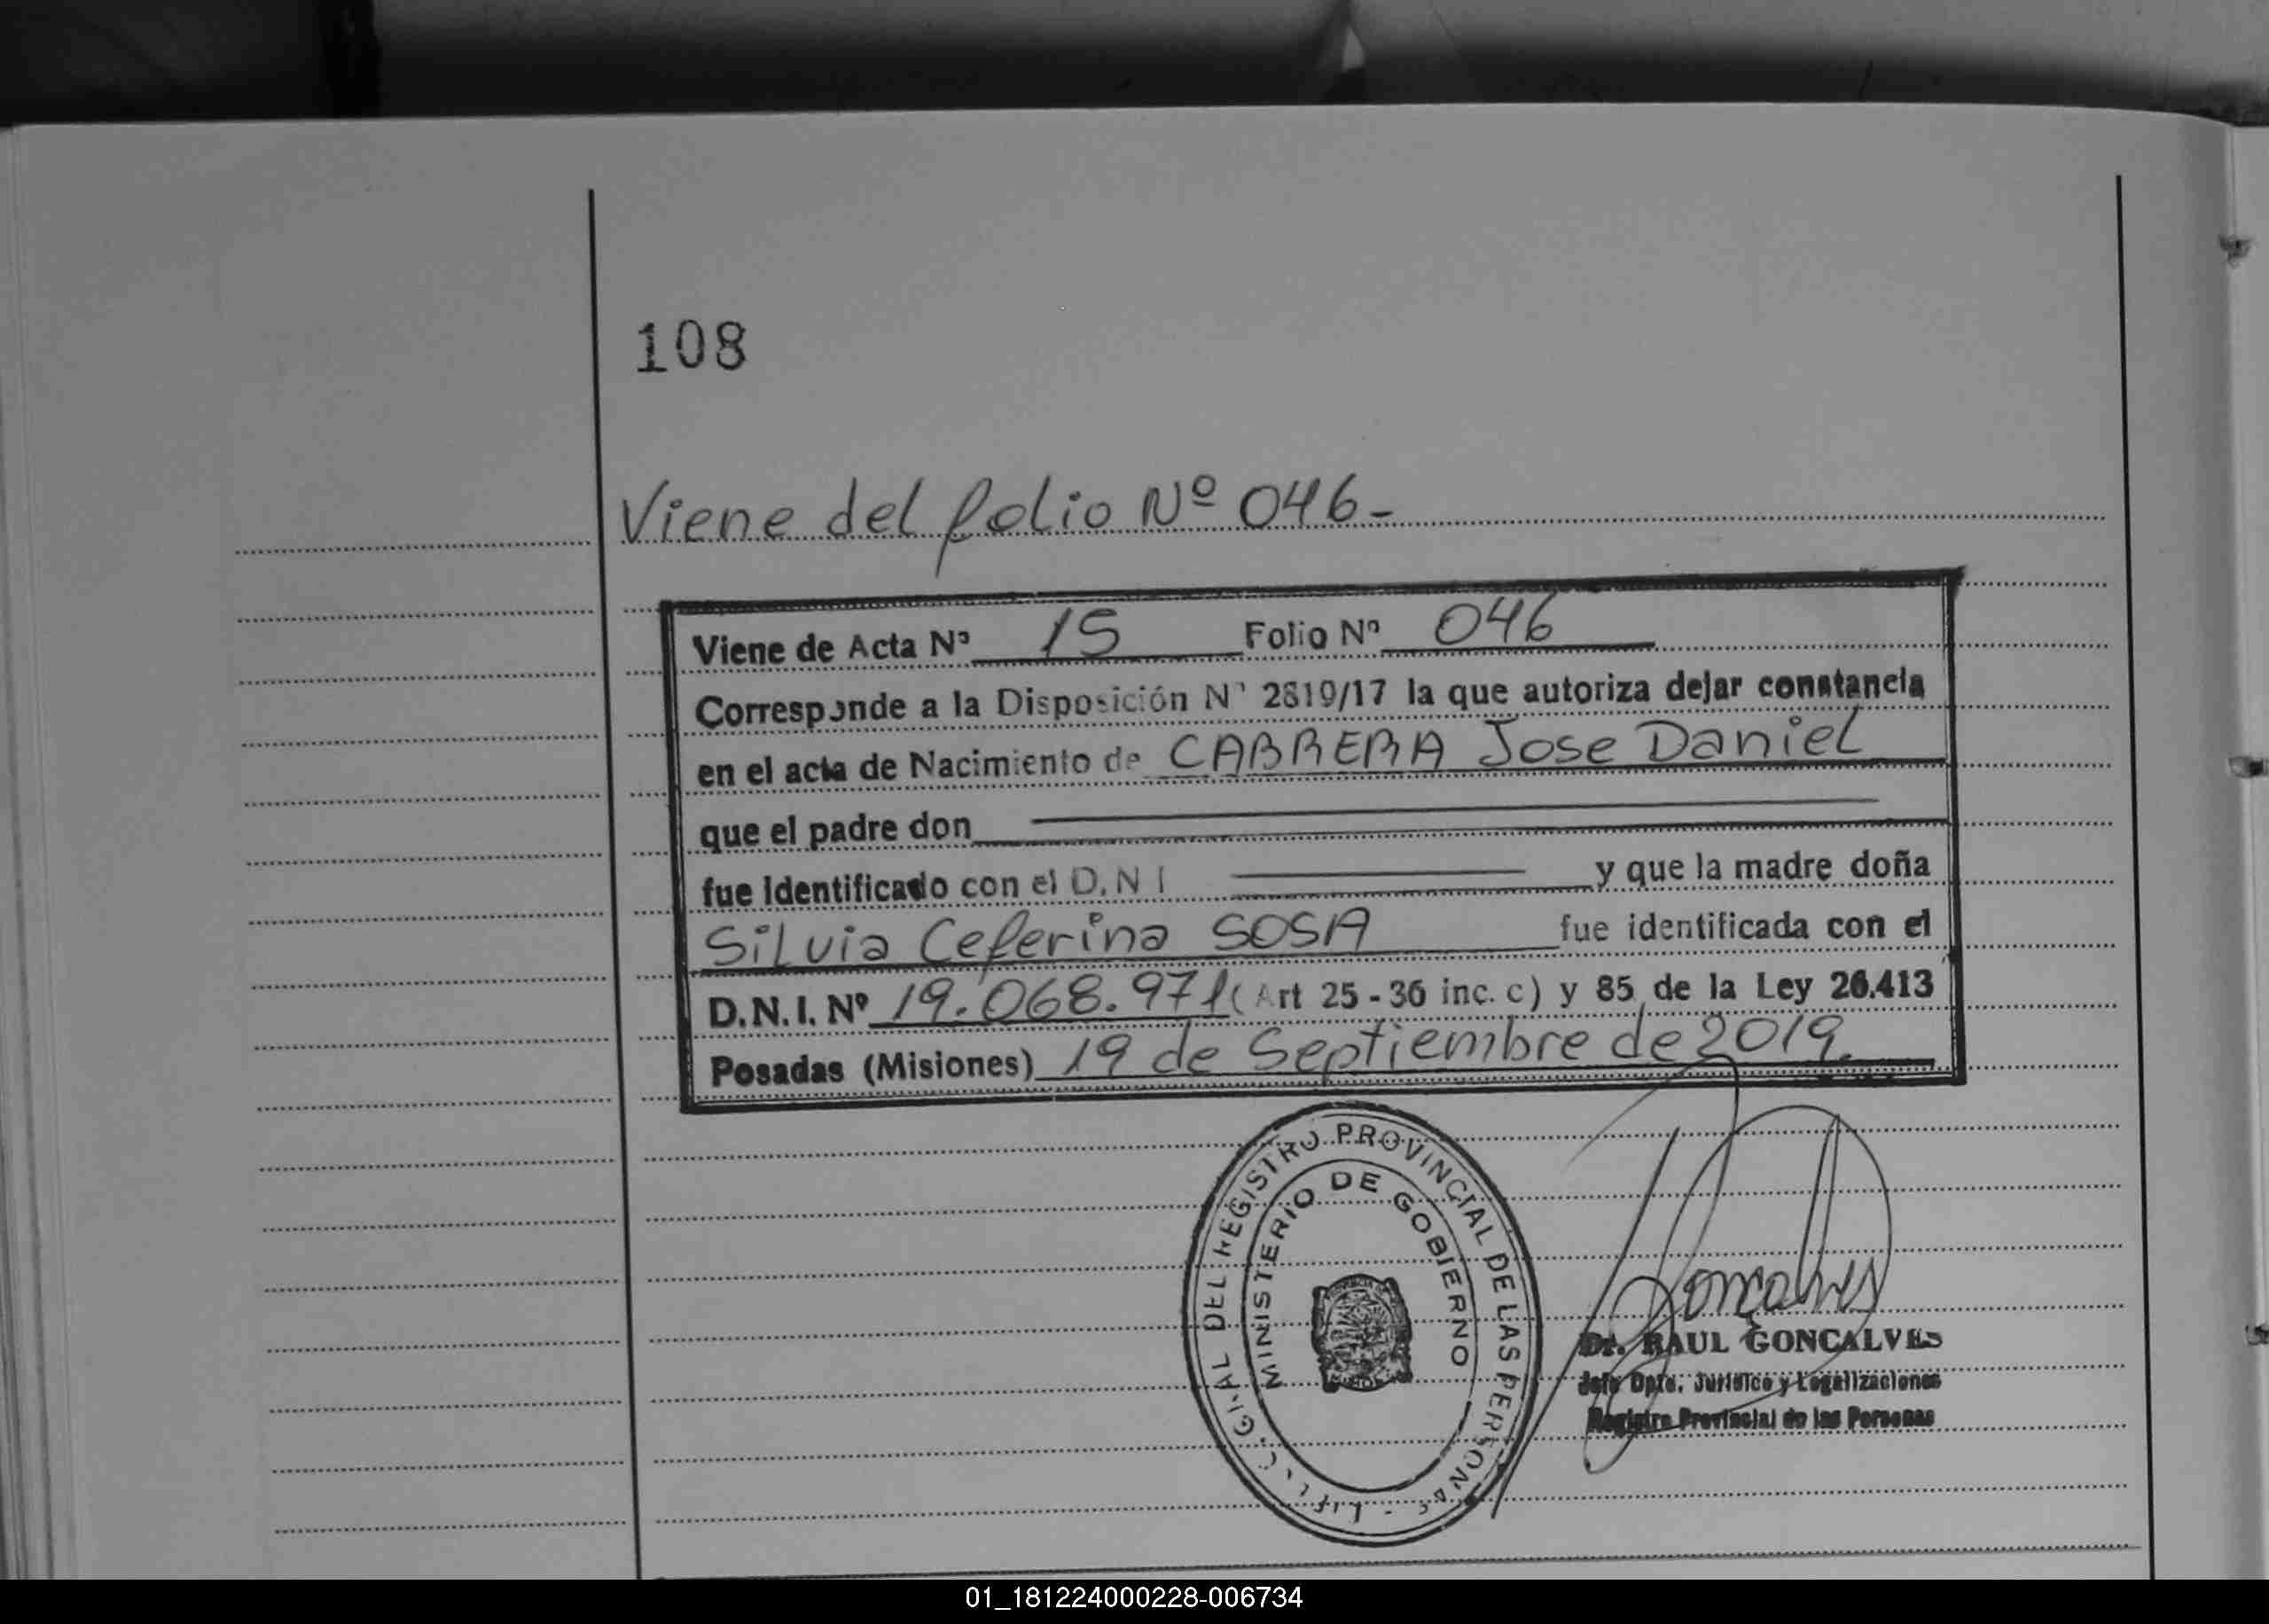 108
Viene del folio Nº 046-
Viene de Acta Nº 15 Folio Nº 046
Corresponde a la Disposición Nº 2819/17 la que autoriza dejar constancia
en el acta de Nacimiento de CABRERA Jose Daniel
que el padre don
fue identificado con el D.N I y que la madre doña
Silvia Ceferina SOSA fue identificada con el
D.N.I. Nº 19.068.971 (Art 25 - 36 inc. c) y 85 de la Ley 26.413
Posadas (Misiones) 19 de Septiembre de 2019.
DEL REGISTRO PROVINCIAL DE LAS PERSONAS
MINISTERIO DE GOBIERNO
Goncalves
Dr. RAUL GONCALVES
Jefe Dpto. Jurídico y Legalizaciones
Registro Provincial de las Personas
01_181224000228-006734